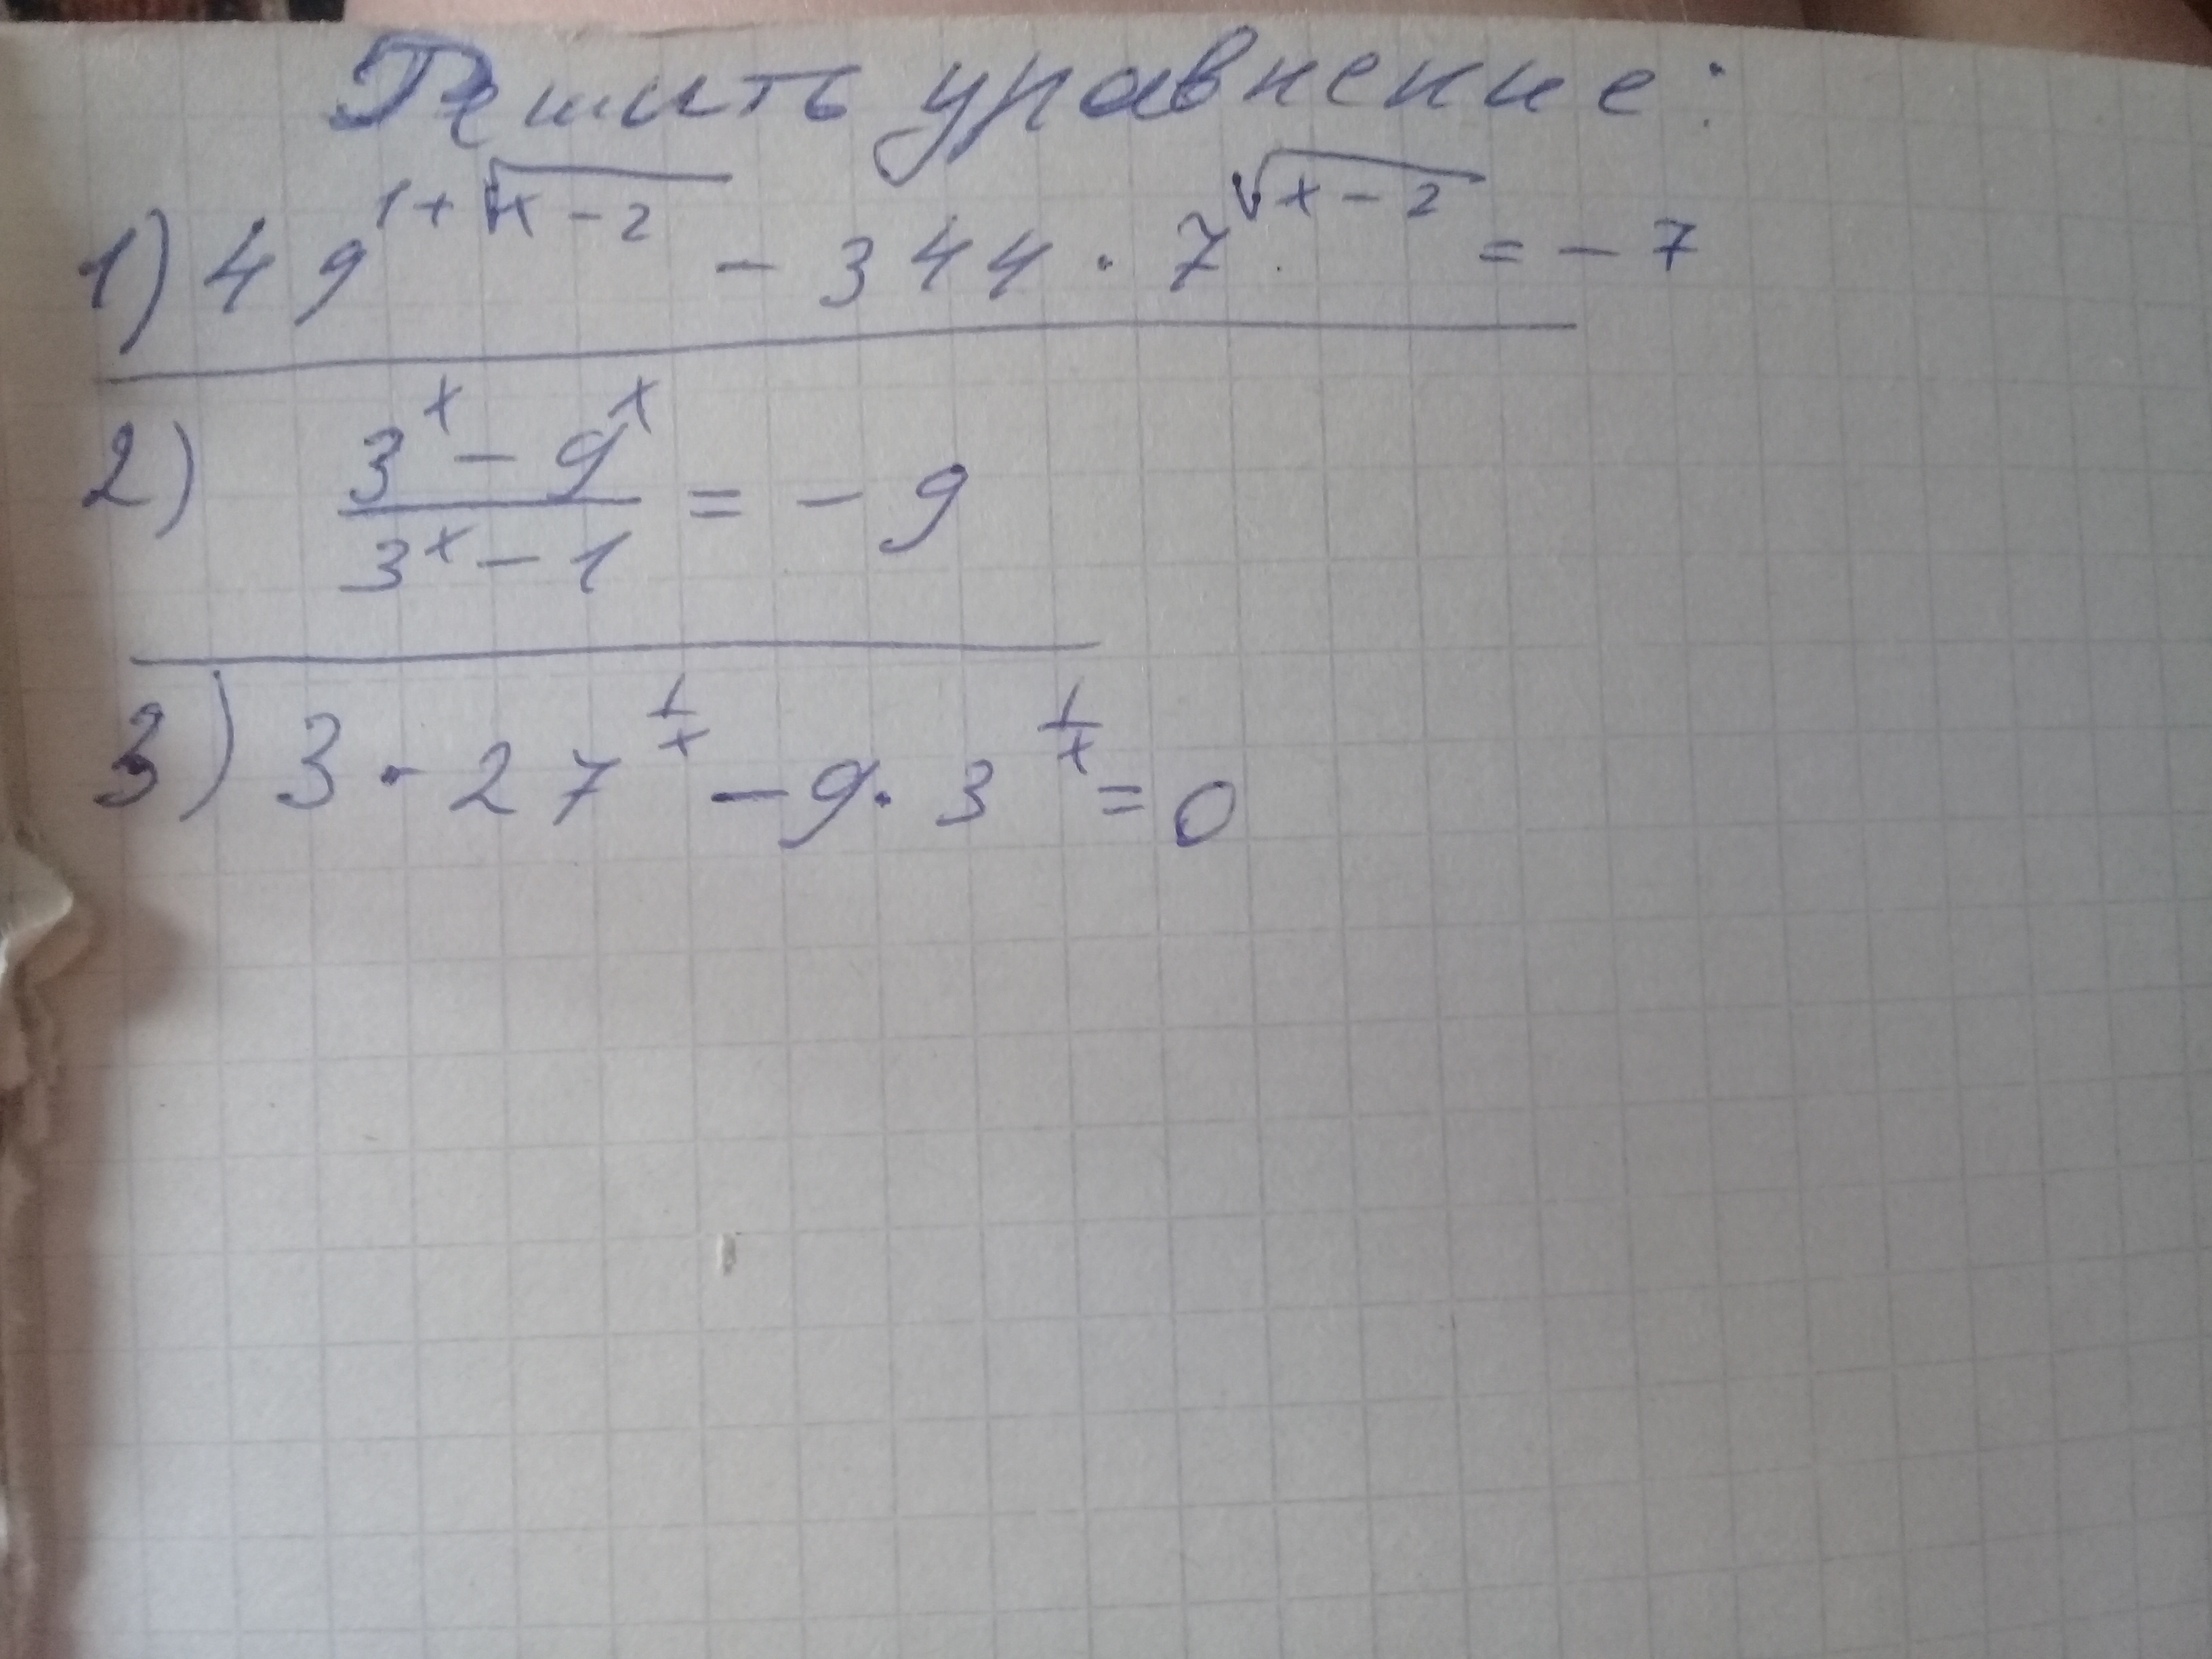 Решить уравнение:
1) 49^{1+√(x-2)} - 344 · 7^{√(x-2)} = -7
2) (3^x - 9^x)/(3^x - 1) = -9
3) 3 · 27^{1/x} - 9 · 3^{1/x} = 0